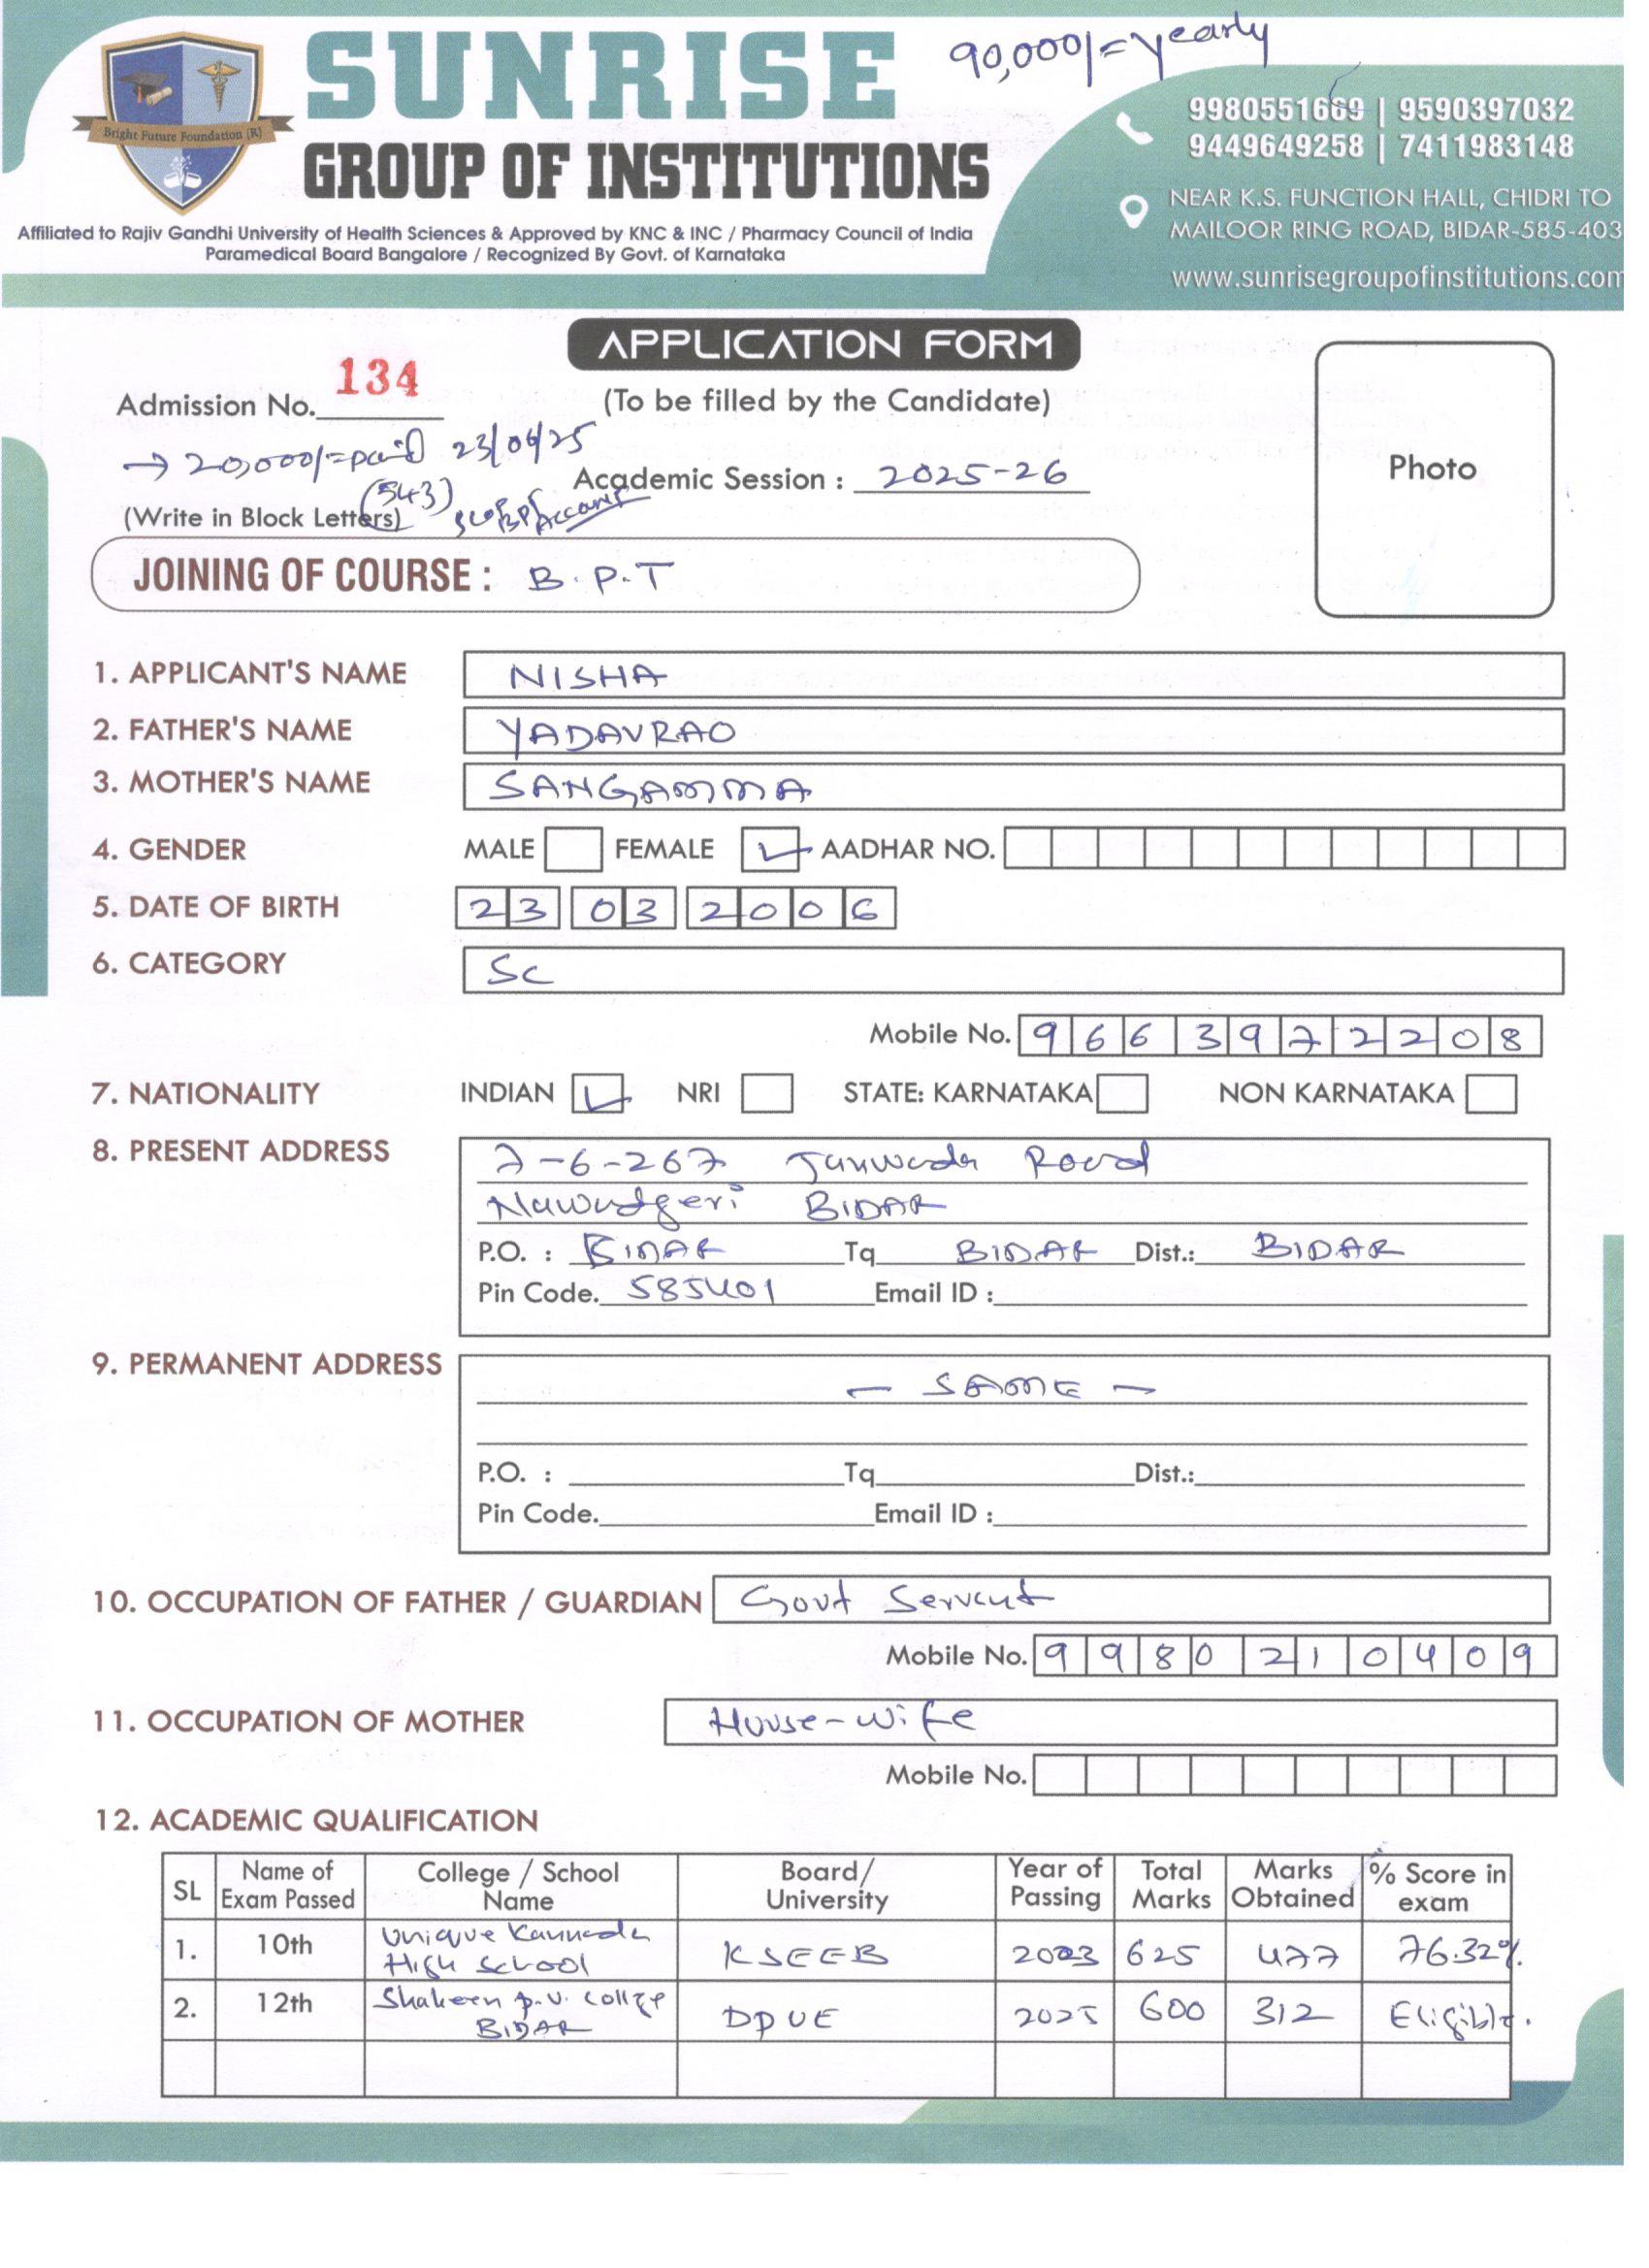 90,000/= yearly
SUNRISE
GROUP OF INSTITUTIONS
Bright Future Foundation (R)
Affiliated to Rajiv Gandhi University of Health Sciences & Approved by KNC & INC / Pharmacy Council of India
Paramedical Board Bangalore / Recognized By Govt. of Karnataka
9980551669 | 9590397032
9449649258 | 7411983148
NEAR K.S. FUNCTION HALL, CHIDRI TO
MAILOOR RING ROAD, BIDAR-585-403
www.sunrisegroupofinstitutions.com
APPLICATION FORM
Admission No. 134
(To be filled by the Candidate)
→ 20,000/= paid 23/04/25
Academic Session : 2025-26
(543)
Account
(Write in Block Letters)
Photo
JOINING OF COURSE : B.P.T
1. APPLICANT'S NAME NISHA
2. FATHER'S NAME YADAVRAO
3. MOTHER'S NAME SANGAMMA
4. GENDER MALE FEMALE ✓ AADHAR NO.
5. DATE OF BIRTH 23 03 2006
6. CATEGORY SC
Mobile No. 9663972208
7. NATIONALITY INDIAN ✓ NRI STATE: KARNATAKA NON KARNATAKA
8. PRESENT ADDRESS 7-6-267 Janwada Road
Nawadgeri BIDAR
P.O. : BIDAR Tq BIDAR Dist.: BIDAR
Pin Code. 585401 Email ID :
9. PERMANENT ADDRESS — SAME —
P.O. : Tq Dist.:
Pin Code. Email ID :
10. OCCUPATION OF FATHER / GUARDIAN Govt Servant
Mobile No. 9980210409
11. OCCUPATION OF MOTHER House-wife
Mobile No.
12. ACADEMIC QUALIFICATION
SL Name of Exam Passed College / School Name Board/ University Year of Passing Total Marks Marks Obtained % Score in exam
1. 10th Unique Kannada High School KSEEB 2023 625 477 76.32%.
2. 12th Shaheen p.u. College BIDAR DPUE 2025 600 312 Eligible.